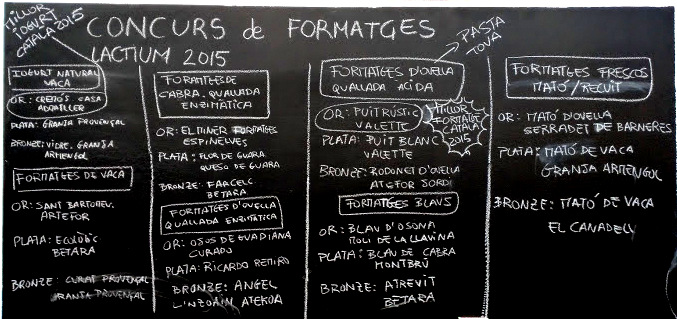 MILLOR
IOGURT
CATALÀ 2015
CONCURS de FORMATGES
LACTIUM 2015
IOGURT NATURAL
VACA
OR: CASA
PLATA: GRANJA PROVENÇAL
BRONZE: VICRE. GRANJA
ARMENGOL
FORMATGES DE VACA
OR: SANT BARTOMEU
ARTEFOR
PLATA: ECOLÒGIC
BETARA
BRONZE: CURAT PROVENÇAL
GRANJA PROVENÇAL
FORMATGES DE
CABRA. QUALLADA
ENZIMÀTICA
OR: EL MINER FORMATGES
ESPINELVES
PLATA: FLOR DE GUARA
QUESO DE GUARA
BRONZE: FARCELL
BETARA
FORMATGES D'OVELLA
QUALLADA ENZIMÀTICA
OR: OSOS DE GUADIANA
CURADO
PLATA: RICARDO REMIRO
BRONZE: ANGEL
LINZOAIN ATEKOA
PASTA
TOVA
FORMATGES D'OVELLA
QUALLADA ÀCIDA
OR: PUITRÚSTIC
VALETTE
MILLOR
FORMATGE
CATALÀ
2015
PLATA: PUIT BLANC
VALETTE
BRONZE: RODONET D'OVELLA
ATEFOR SORDI
FORMATGES BLAUS
OR: BLAU D'OSONA
MOLI DE LA LLAVINA
PLATA: BLAU DE CABRA
MONTBRÚ
BRONZE: ATREVIT
BETARA
FORMATGES FRESCOS
MATÓ/RECUIT
OR: MATÓ D'OVELLA
SERRADET DE BARNERES
PLATA: MATÓ DE VACA
GRANJA ARMENGOL
BRONZE: MATÓ DE VACA
EL CANADELL